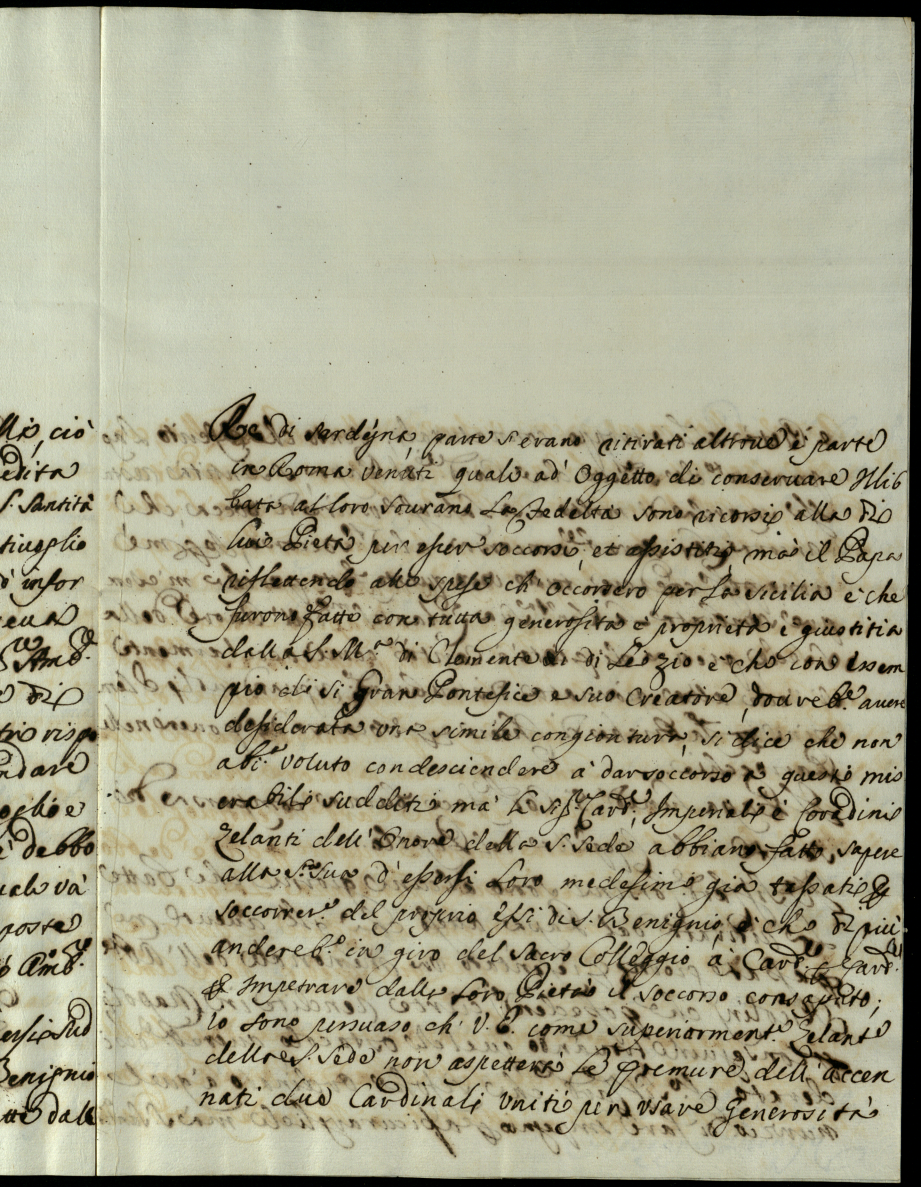 lla, ciò
edita
S. Santità
tivoglio
d' infor
eua
Amb.r
e di
tri rispo
ndare
oglio e
è debbo
uale và
poste
ò Amb.r
ersi sud
Benignio
tte dall
Rè di Sardegna parte si erano ritirati altroue è parte
in Roma venuti quali ad' oggetto di conseruare Illib
bata al loro Sourano La Fedeltà sono ricorsi alla di
lui Pietà per esser soccorsi, et assistiti, mà il Papa
riflettendo alle spese ch' occorsero per La Sicilia è che
furono fatte con tutta generosità e proprietà è giustitia
dalla S. M.a di Clemente di Lei Zio è che con essem
pio di sì Gran Pontefice e suo Creatore, dourebb.e auere
desiderata una simile congiontura, si dice che non
abi.a voluto condesciendere à dar soccorso à questi mis
erabili sudditi mà Li Sig.ri Card.li Imperiali è
Zelanti dell' Onore della S. Sede abbiano fatto sapere
alla S.tà Sua d' essersi Loro medesimi già tassati p
soccorrer.e del proprio essi di S. Benignio, è che di più
anderebb.o in giro del Sacro Colleggio à Card.le p Card.le
p Impetrare dalla Loro Pietà il soccorso consaputo;
io sono persuaso ch' V. E. come superiorment.e Zelante
della S. Sede non aspetterà Le premure dell' accen
nati due Cardinali vniti per vsare Generosità